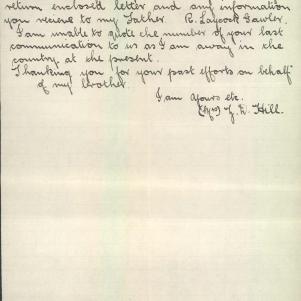 return enclosed letter and any information
you receive to my Father. R. Laycock Gawler.
I am unable to quote the number of your last
communication to us as I am away in the
country at the present.
Thanking you for your past efforts on behalf
of my brother.
I am yours etc.
(Mrs) J. E. Hill.